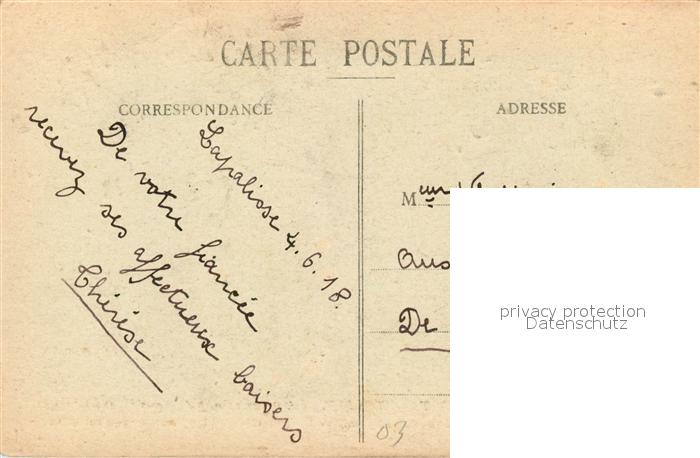 CARTE POSTALE
CORRESPONDANCE
ADRESSE
Lapalisse 4.6.18.
De votre fiancée
recevez ses affectueux baisers
Thérèse
M
De
privacy protection
Datenschutz
03